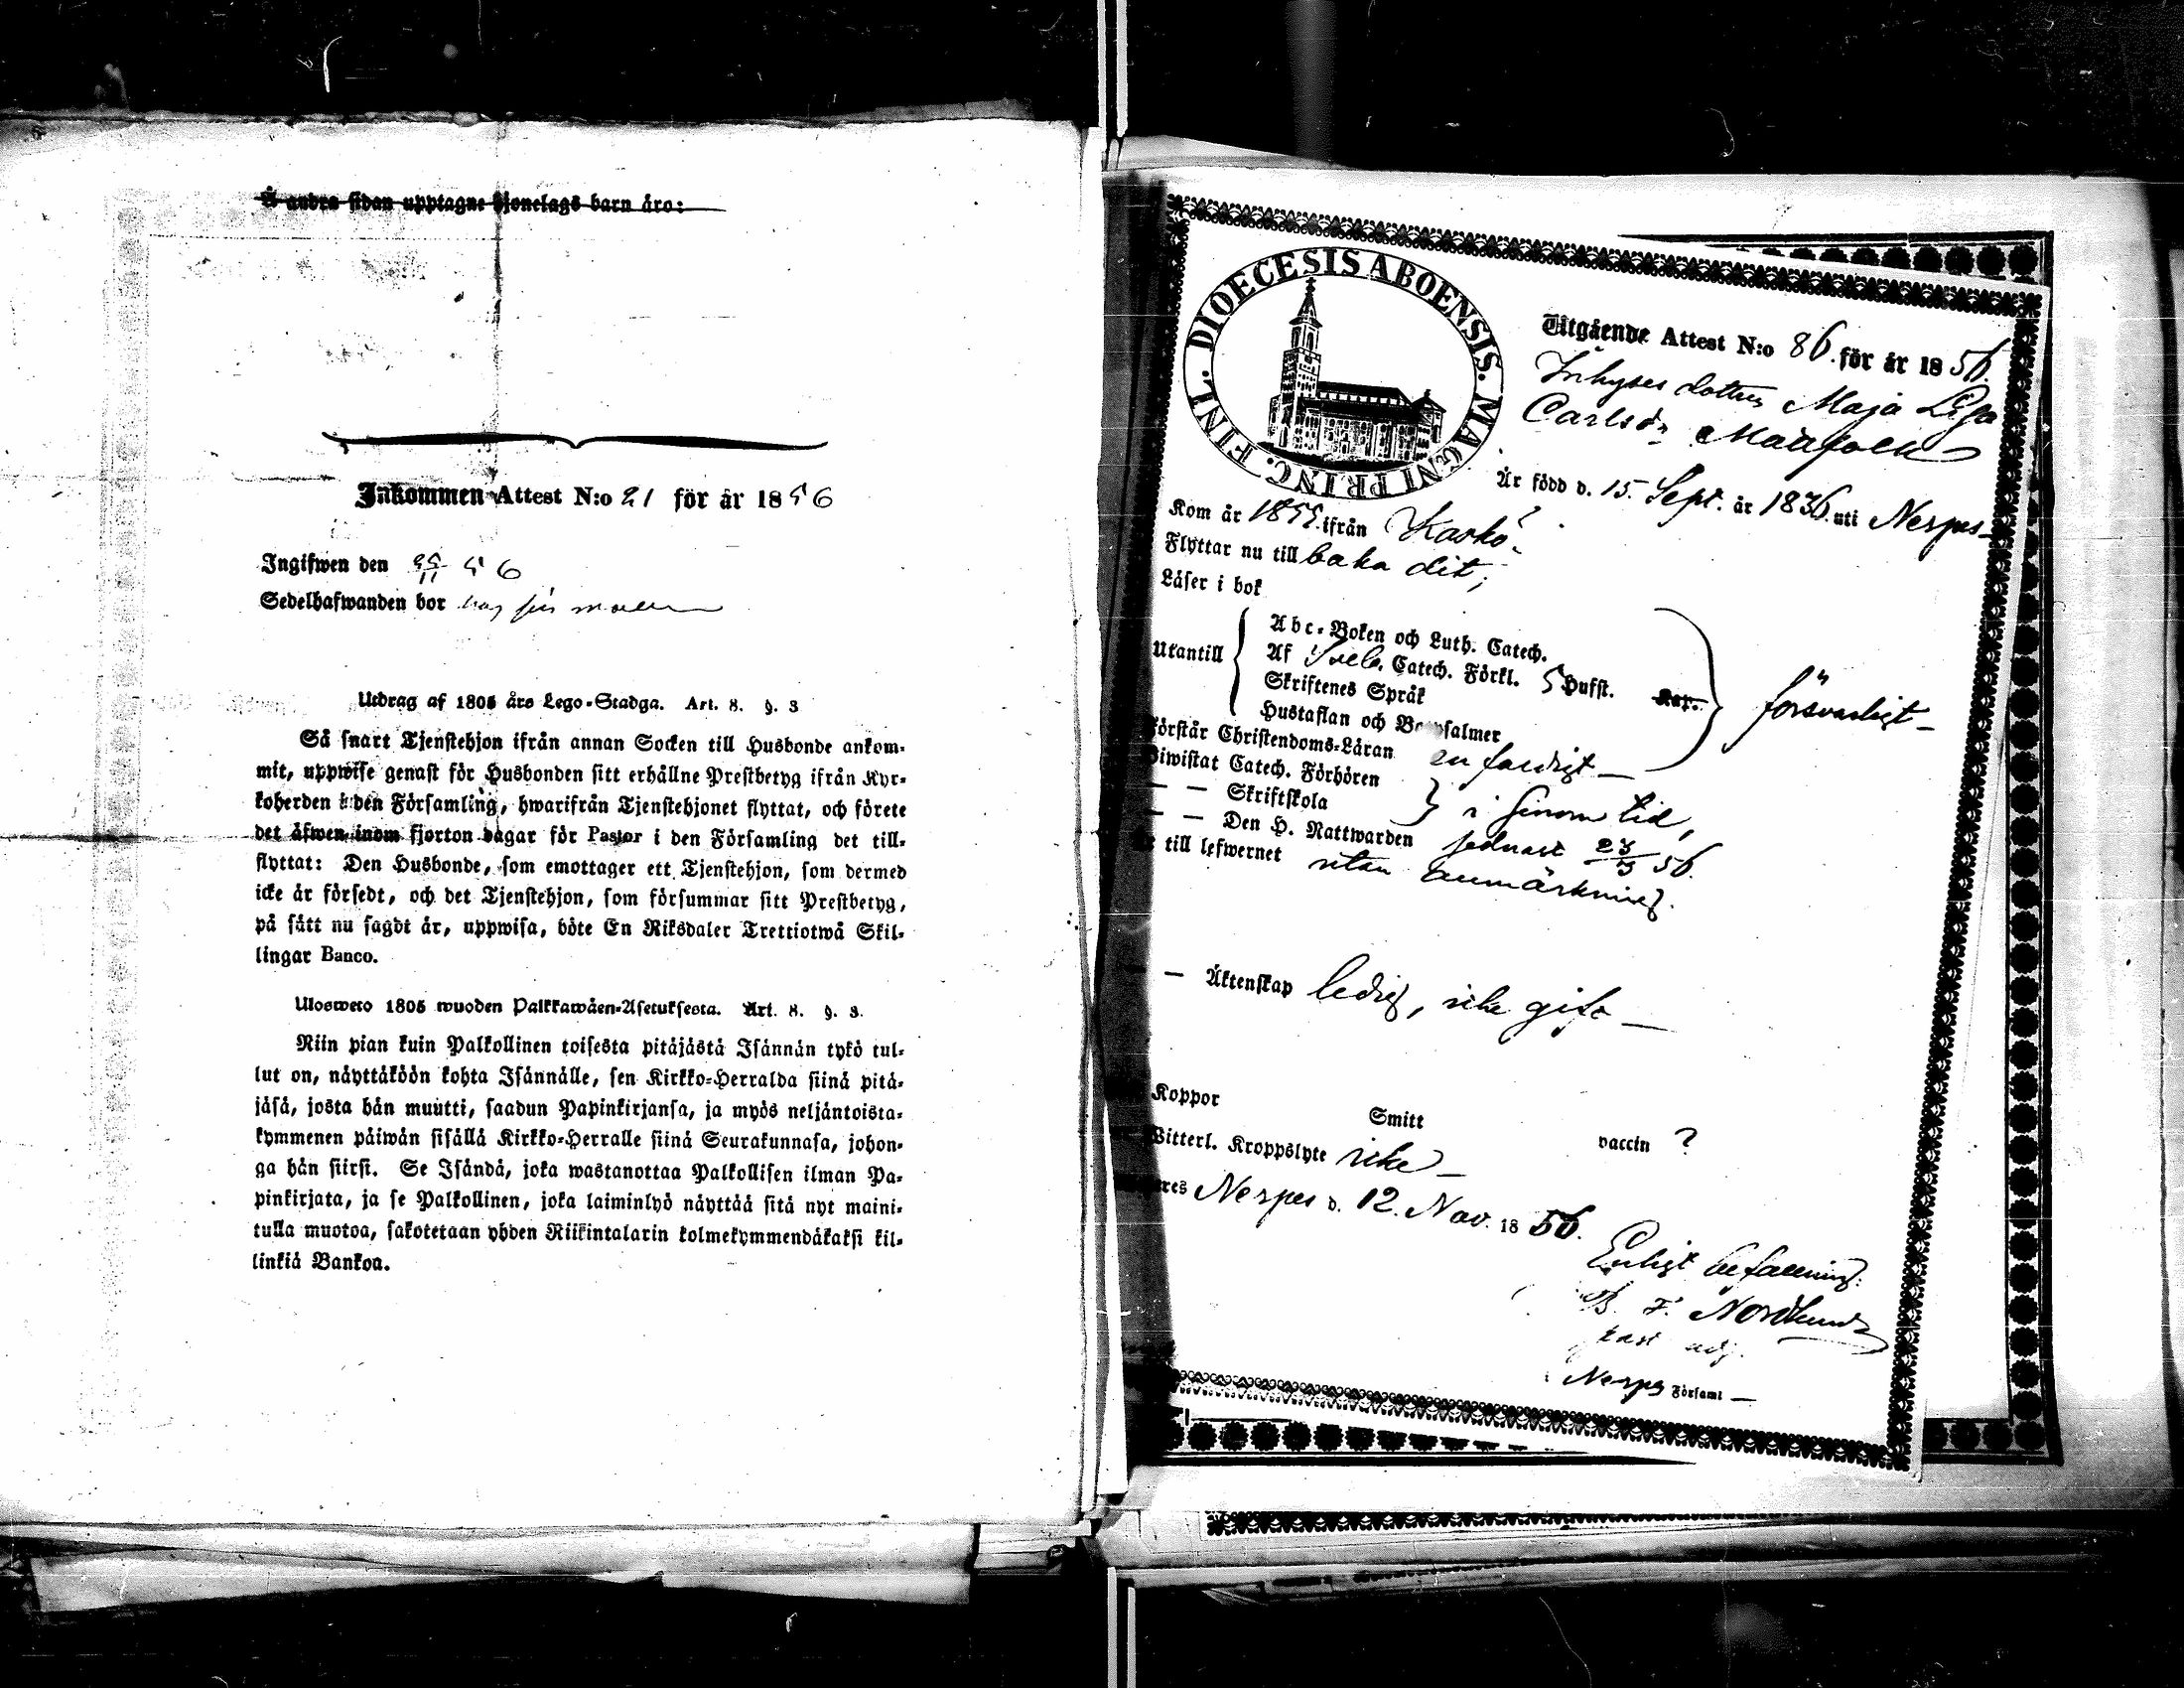 Å andra sidan upptagne hjonelags barn äro:
Inkommen Attest N:o 21 för år 1856
Ingifwen den 56
Sedelhafwanden bor
Utdrag af 1805 års Lego-Stadga. Art. 8. §. 3
Så snart Tjenstehjon ifrån annan Socken till Husbonde ankom-
mit, uppwise genast för Husbonden sitt erhållne Prestbetyg ifrån Kyr-
koherden i den Församling, hwarifrån Tjenstehjonet flyttat, och förete
det äfwen inom fjorton dagar för Pastor i den Församling det till-
flyttat: Den Husbonde, som emottager ett Tjenstehjon, som dermed
icke är försedt, och det Tjenstehjon, som försummar sitt Prestbetyg,
på sätt nu sagdt är, uppwisa, böte En Riksdaler Trettiotwå Skil-
lingar Banco.
Ulosweto 1805 wuoden Palkkawäen-Asetuksesta. Art. 8. §. 3.
Niin pian kuin Palkollinen toisesta pitäjästä Isännän tykö tul-
lut on, näyttäköön kohta Isännälle, sen Kirkko-Herralda siinä pitä-
jäsä, josta hän muutti, saadun Papinkirjansa, ja myös neljäntoista-
kymmenen päiwän sisällä Kirkko-Herralle siinä Seurakunnasa, johon-
ga hän siirsi. Se Isändä, joka wastanottaa Palkollisen ilman Pa-
pinkirjata, ja se Palkollinen, joka laiminlyö näyttää sitä nyt maini-
tulla muotoa, sakotetaan yhden Riikintalarin kolmekymmendäkaksi kil-
linkiä Bankoa.
FINL. DIOECESIS ABOENSIS. MAGNI PRINC.
Utgående Attest N:o 86. för år 1856
Inhyses dottren Maja Lisa
Carlsdr
Är född d. 15. Sept. år 1836. uti Nerpes
Kom år 1855. ifrån Kaskö
Flyttar nu till baka dit;
Läser i bok
Utantill
Abc-Boken och Luth. Catech.
Af Sveb. Catech. Förkl. 5 Hufst. Kap.
Skriftenes Språk
Hustaflan och Botpsalmer
försvarligt
Förstår Christendoms-Läran enfaldigt
Biwistat Catech. Förhören
— — Skriftskola
i sinom tid,
— — Den H. Nattwarden sednast 56.
Är till lefwernet utan anmärkning.
— Äktenskap ledig, icke gift
Koppor Smitt vaccin ?
Witterl. Kroppslyte icke
Nerpes d. 12. Nov. 1856.
Enligt befallning:
F. Nordlund
past adj.
Nerpes Församl